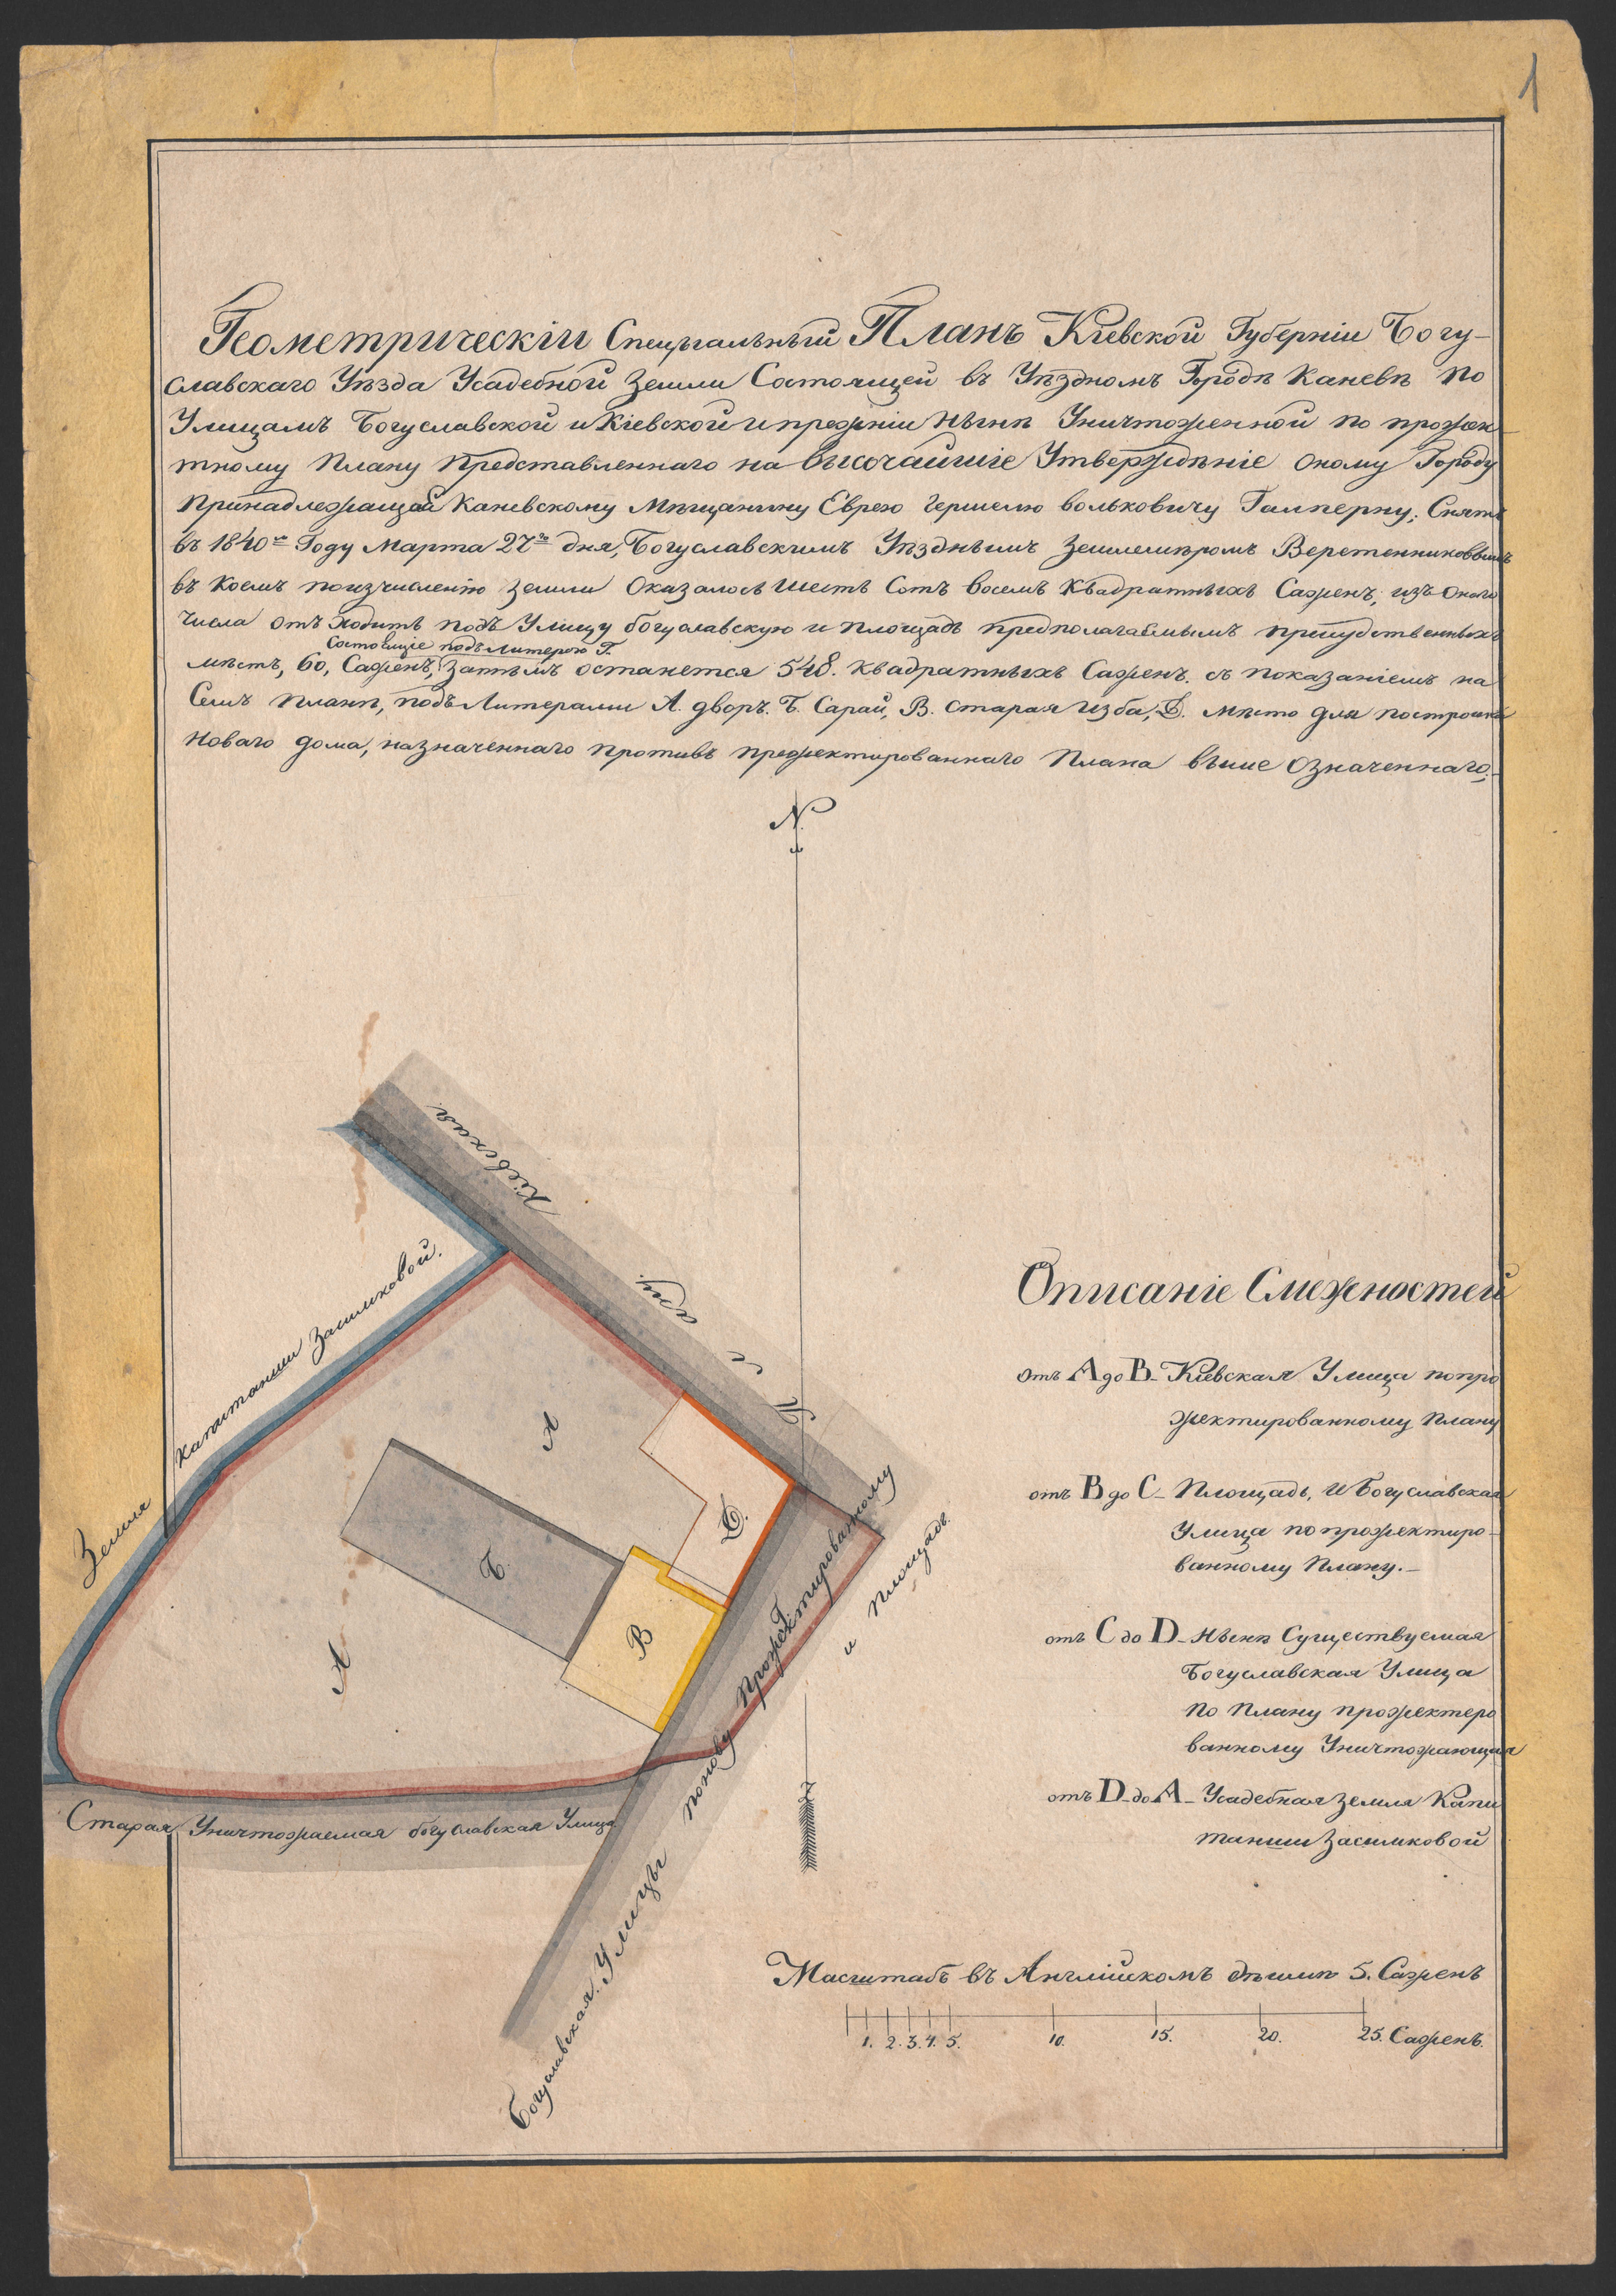 1
Геометрическiи Спецыгальный Планъ Кіевской Губерніи Богу-
славскаго Уѣзда Усадебной Земли Состоящей въ Уѣздномъ Городѣ Каневѣ По
Улицамъ Богуславской и Кіевской и прежніи Нынѣ Уничтоженной по прожек
тному Плану Представленнаго на высочайшіе Утвержденіе оному Городу
Принадлежащей Каневскому Мѣщанину Еврею Гершелю вольковичу Галперну; Снятъ
въ 1840м Году Марта 27го дня, Богуславскимъ Уѣзднымъ Землемѣромъ Веретенниковымъ
въ Коемъ поизчисленію Земли Оказалось Шесть Сотъ восемъ Квадратныхъ Саженъ; изъ Оного
числа отъ Ходитъ подъ Улицу богуславскую и площадь предполагаемымъ присудственныхъ
Состовщіе подъ Литерою Г.
мѣстъ, 60, Саженъ, Затѣмъ останется 548. квадратныхъ Саженъ. съ показаніемъ на
Семъ Планѣ, подъ Литерами А. дворъ. Б. Сарай, В. Старая Изба, Д. Мѣсто для постройки
Новаго дома, назначеннаго противъ прежектированнаго Плана выше Означеннаго.
N
Кіевская
Улица
Земля капитанши Засимковой.
А
Д.
Б.
В
А
Г
Старая Уничтожаемая богуславская Улица
Богуславская. Улицы поновву Прожектированому
и Площадь.
Описаніе Смежностей
отъ А до В- Кіевская Улица попро
жектированному Плану
отъ В до С- Площадь, и Богуславская
Улица по прожектиро-
ванному Плану.-
отъ С до D- Нынѣ Существуемая
Богуславская Улица
по Плану прожектеро
ванному Уничтожающия
отъ D- до А- Усадебная Земля Капи
танши Засимковой
Масштабъ въ Англійскомъ дюймѣ 5. Саженъ
1. 2. 3. 4. 5. 10. 15. 20. 25. Саженъ.